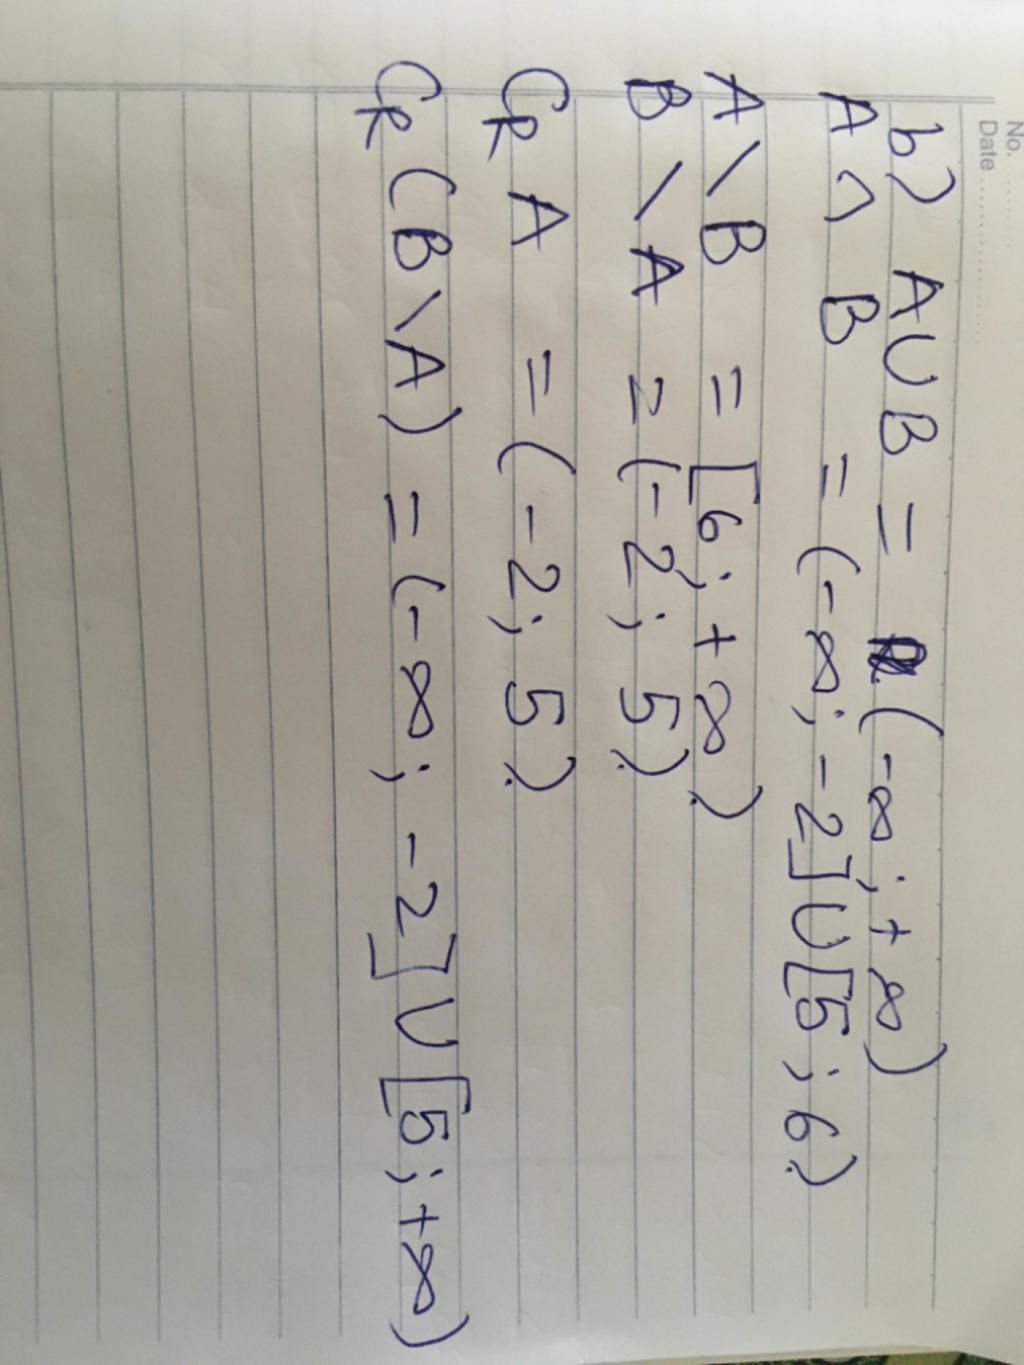 No. ..........
Date ....................
b) A∪B = (-∞; +∞)
A∩B = (-∞; -2]∪[5; 6)
A\B = [6; +∞)
B\A = (-2; 5)
C_R A = (-2; 5)
C_R (B\A) = (-∞; -2]∪[5; +∞)